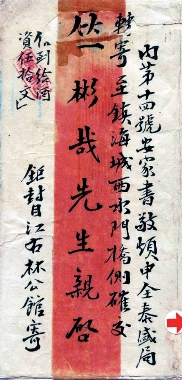 內第十四號安家書敬煩申全泰盛局
轉寄至鎮海城西水門橋側確交
竺彬哉先生親啓
鉅封自江右林公館寄
仰到給酒
資伍拾文